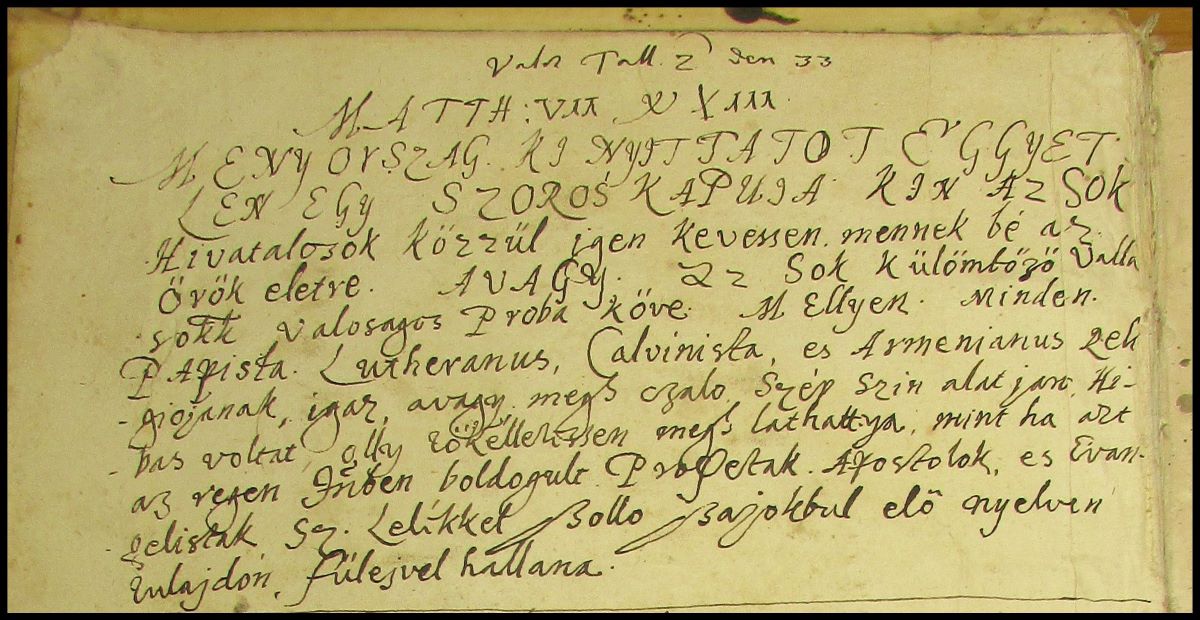 Valor Tall. 2 den 33
MATTH: VII XVIII
MENYORSZAG. KI NYITTATOT EGGYET
LEN EGY SZOROS KAPUIA KIN AZ SOK
Hivatalosok közzül igen kevessen mennek bé az
Örök eletre. AVAGY. Az Sok külömbözö Valla
sokk Valosagos Proba köve. Mellyen Minden
PApista. Lutheranus, Calvinista, es Armenianus Reli
giojanak, igaz, avagy megh czalo Szép Szin alat jaro Hi-
bas voltat, olly megh lathattya, mint ha azt
az regen boldogult Prophetak. Apostolok, es Evan-
gelistak Sz. Lelikkel szollo szajokbul elö nyelven
tulajdon, fülejvel hallana.